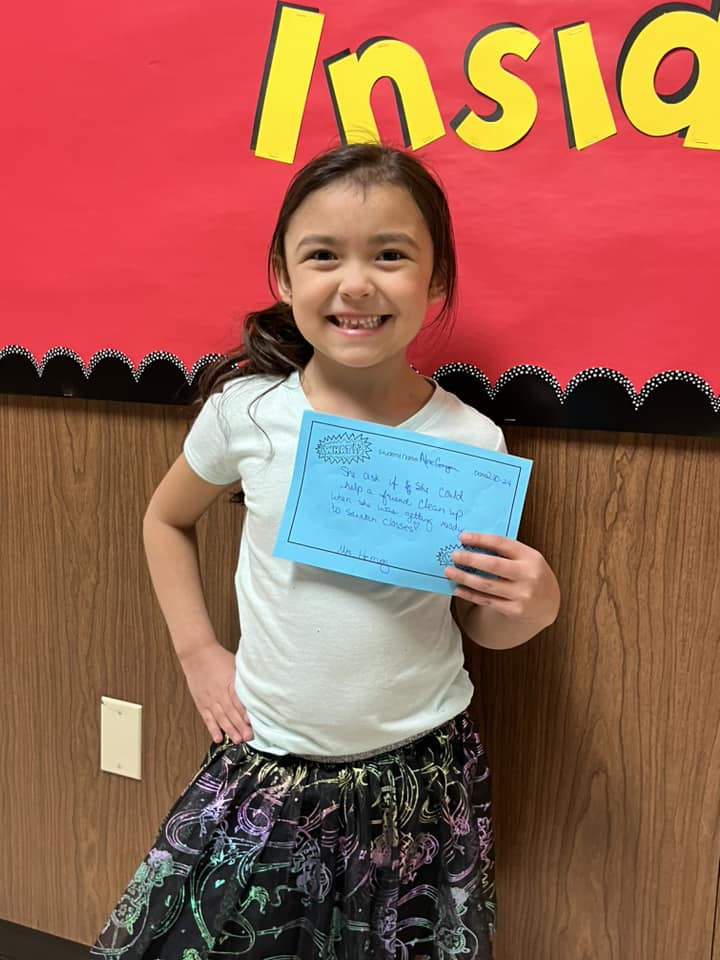 Insid
WHAT!?
Student Name Date 2-20-24
She ask if she could
help a friend clean up
when she was getting ready
to switch classes
Mrs.